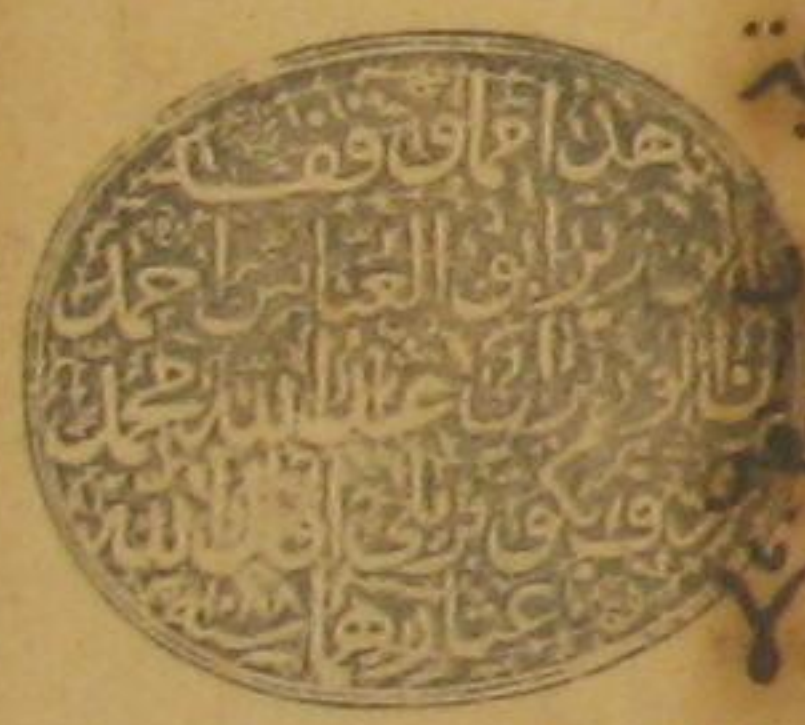 هذا مما وقفه
الوزير ابو العباس احمد
بن الوزير ابى عبد الله محمد
عرف بكوبريلى اقال الله
عثارهما سنه ١٠٨٨